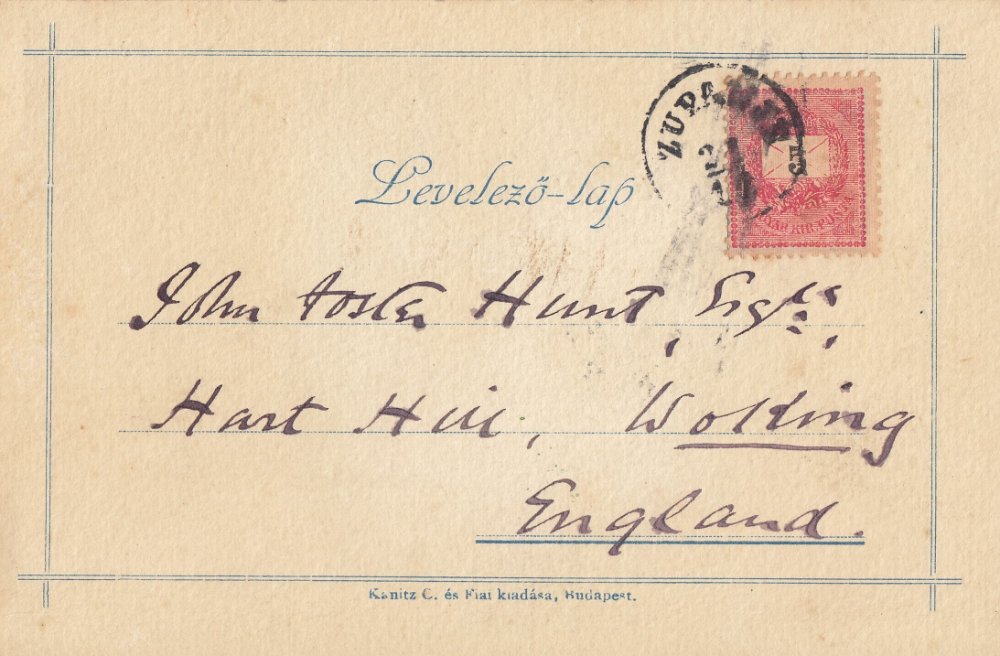 ZUPA
Levelező-lap
MAGYAR KIR. POSTA
John Foster Hunt, Esqre,
Hart Hill, Wokking
England.
Kanitz C. és Fiai kiadása, Budapest.